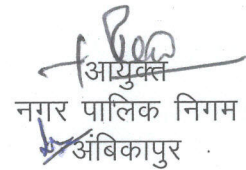 आयुक्त
नगर पालिक निगम
अंबिकापुर